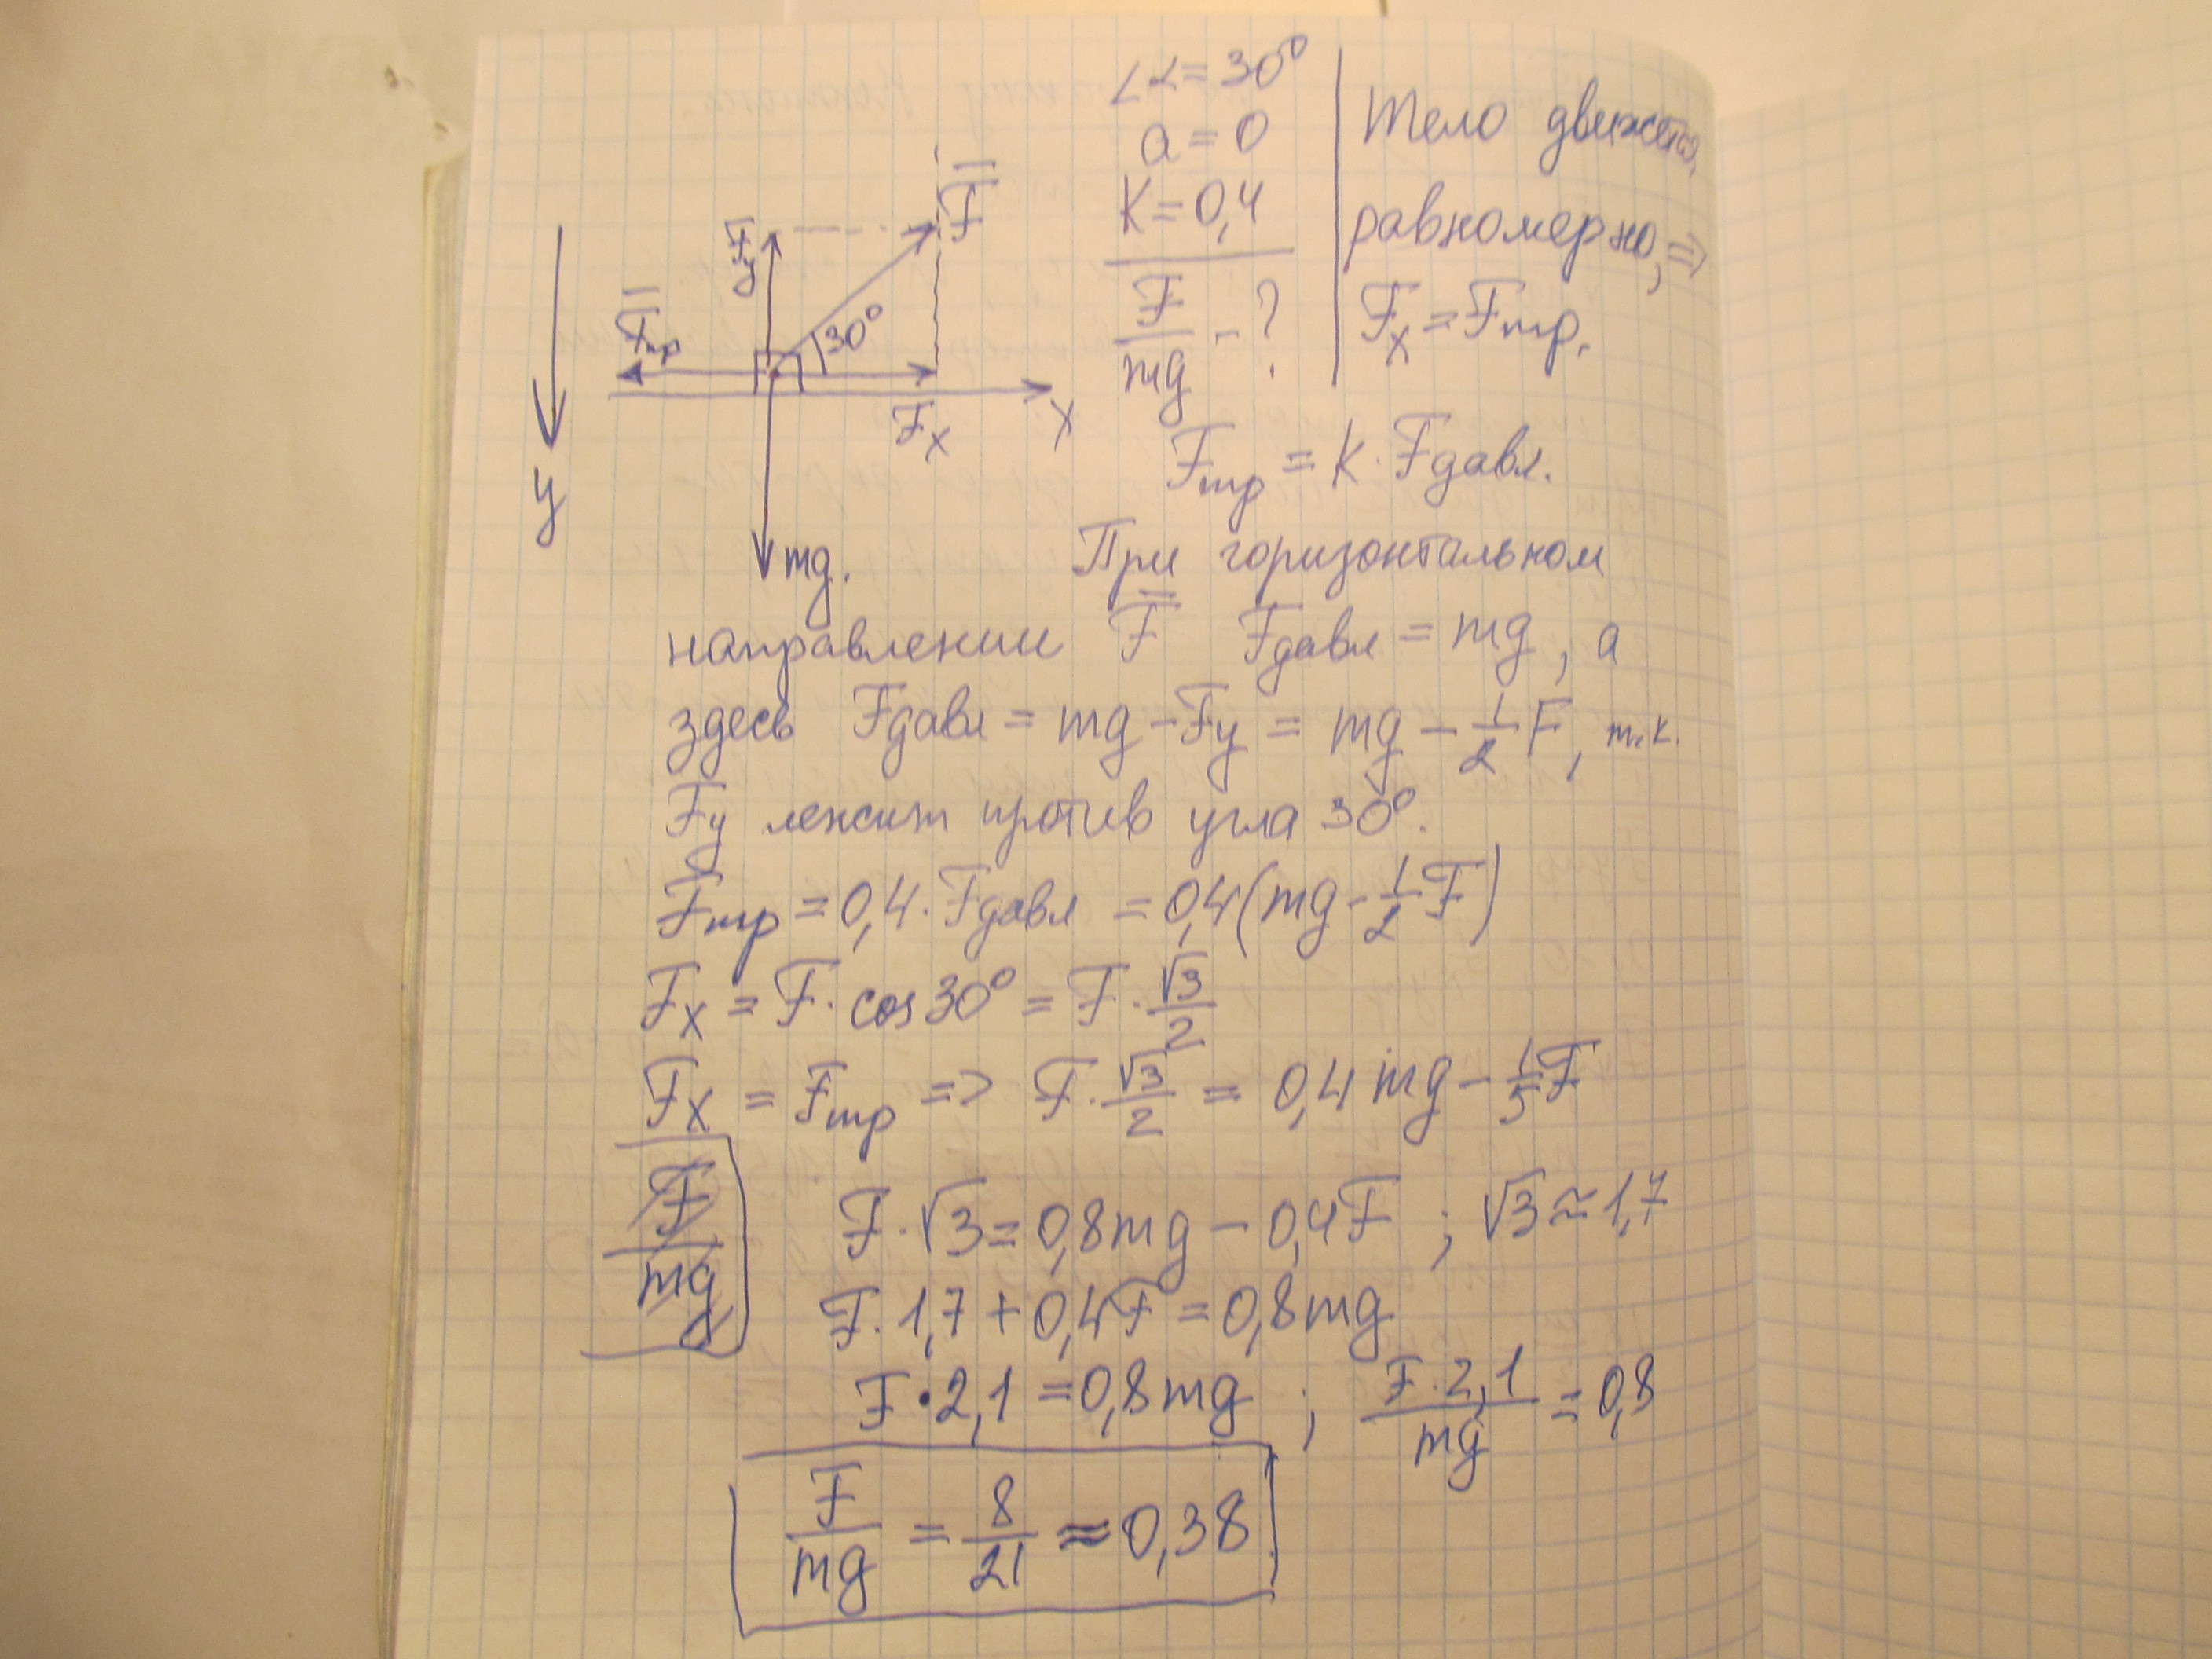 ∠α = 30°
a = 0
K = 0,4
F/mg - ?
Тело движется
равномерно, =>
Fx = Fтр.
F̅
Fy
F̅тр
30°
Fx
x
y
mg.
Fтр = K · Fдавл.
При горизонтальном
направлении F̅ Fдавл = mg, а
здесь Fдавл = mg - Fy = mg - 1/2 F, т.к.
Fy лежит против угла 30°.
Fтр = 0,4 · Fдавл = 0,4(mg - 1/2 F)
Fx = F · cos 30° = F · √3/2
Fx = Fтр => F · √3/2 = 0,4 mg - 1/5 F
F/mg
F · √3 = 0,8mg - 0,4F ; √3 ≈ 1,7
F · 1,7 + 0,4F = 0,8mg
F · 2,1 = 0,8mg ; F · 2,1/mg = 0,8
F/mg = 8/21 ≈ 0,38